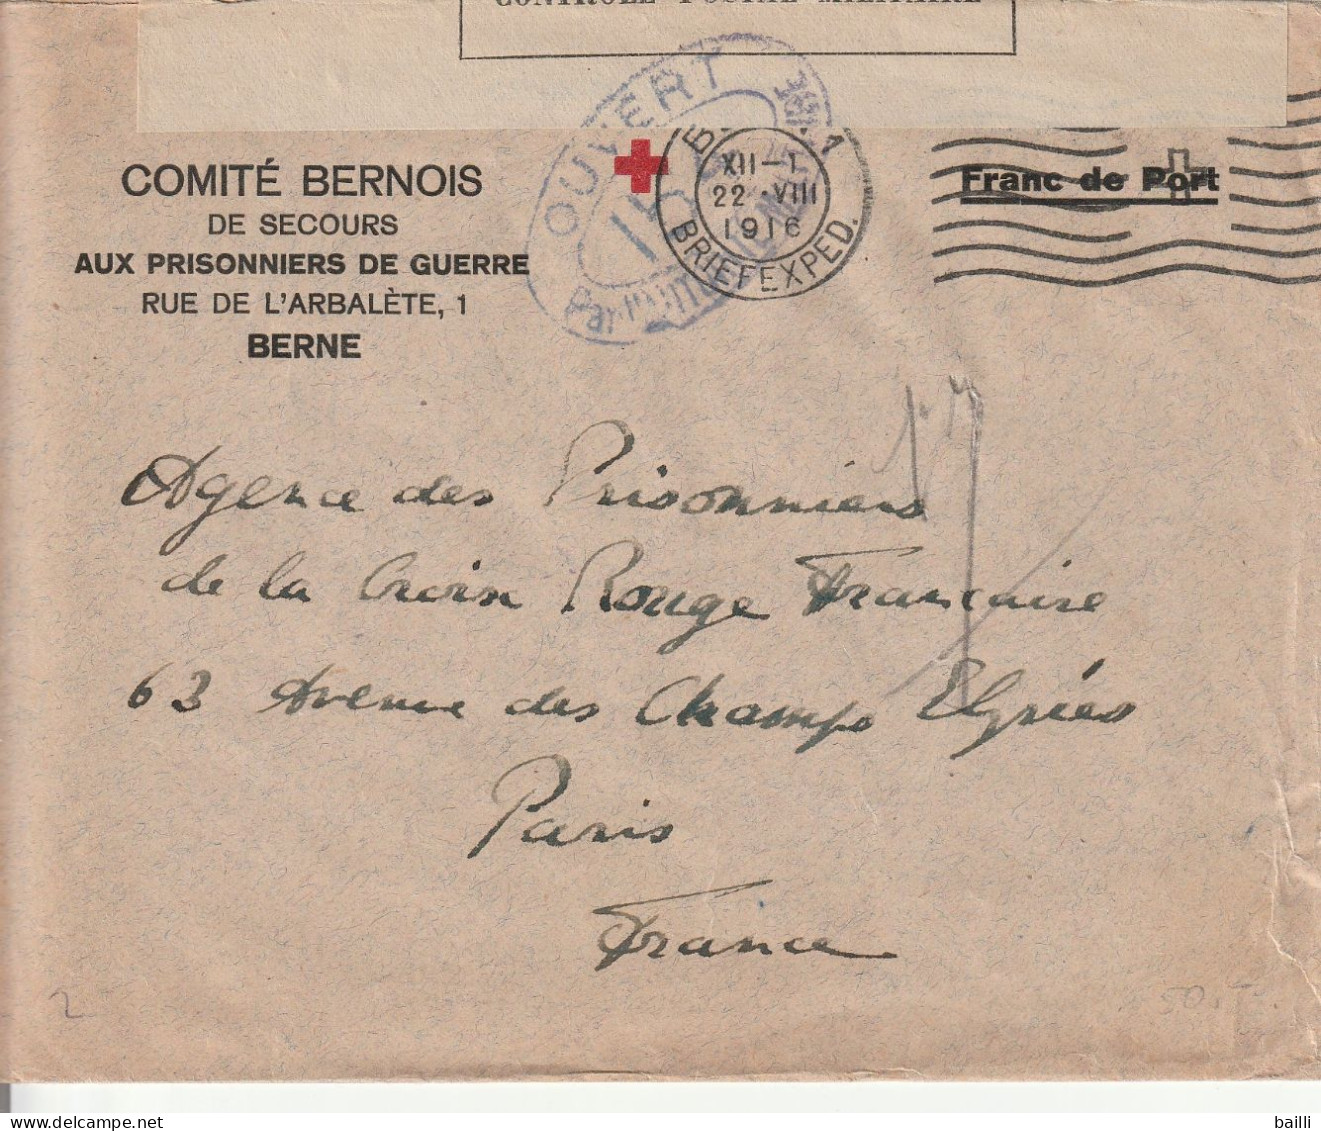 CONTRÔLE POSTAL MILITAIRE
OUVERT
Par
XII-1
22·VIII
1916
BRIEFEXPED.
1
Franc de Port
COMITÉ BERNOIS
DE SECOURS
AUX PRISONNIERS DE GUERRE
RUE DE L'ARBALÈTE, 1
BERNE
Agence des Prisonniers
de la Croix Rouge Française
63 Avenue des Champs Elysées
Paris
France
2
50.-
Delcampe.net
bailli